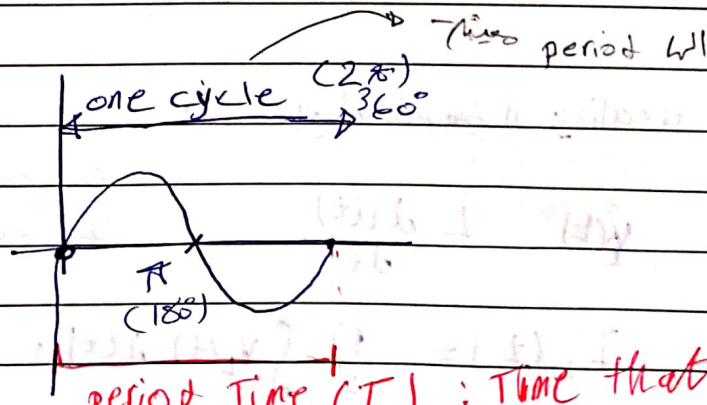 period
(2π)
one cycle 360°
π
(180°)
period Time (T) : Time that